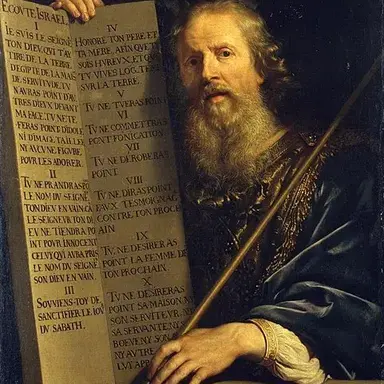 ECOVTE ISRAEL
I
IE SVIS LE SEIGNE
TON DIEV, QVI T'AY
TIRE DE LA TERRE
D'EGIPTE DE LA MAIS
DE SERVITVDE, TV
N'AVRAS POINT D'AV
TRES DIEVX DEVANT
MA FACE, TV NE TE
FERAS POINT D'IDOLE
NI D'IMAGE TAILLEE
NY AVCVNE FIGVRE
POVR LES ADORER.
II
TV NE PRANDRAS PO
LE NOM DV SEIGNE
TON DIEV EN VAIN, CA
LE SEIGNEVR TON DI
EV NE TIENDRA PO
INT POVR INNOCENT
CELVY QVI AVRA PRIS
LE NOM DV SEIGNE
SON DIEV EN VAIN.
III
SOVVIENS-TOY DE
SANCTIFIER LE IOV
DV SABATH.
IV
HONORE TON PERE ET
TA MERE, AFIN QVE TV
SOIS HVREVX, ET QVE
TV VIVES LOG. TEPS
SVR LA TERRE.
V
TV NE TVERAS POINT
VI
TV NE COMMETTRAS
POINT FONICATION
VII
TV NE DEROBERAS
POINT
VIII
TV NE DIRAS POINT
FAVX TESMOIGNAG
CONTRE TON PROCH
AIN
IX
TV NE DESIRERAS
POINT LA FEMME DE
TON PROCHAIN
X
TV NE DESIRERAS
POINT SA MAISON, NY
SON SERVITEVR, NY
SA SERVANTE, NY
BOEVF, NY SON
NY AVTRE
LVY APP